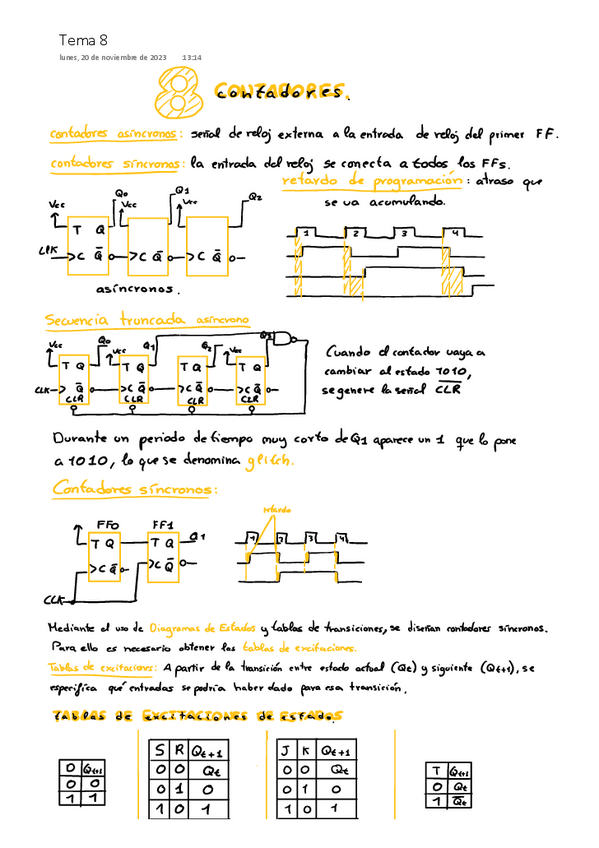 Tema 8
lunes, 20 de noviembre de 2023 13:14
8 CONTADORES.
contadores asíncronos: señal de reloj externa a la entrada de reloj del primer FF.
contadores síncronos: la entrada del reloj se conecta a todos los FFs.
retardo de programación: atraso que
se va acumulando.
Vcc Q0 Vcc Q1 Vcc Q2
T Q
CLK >C Q̅ >C Q̅ >C Q̅
1 2 3 4
asíncronos.
Secuencia truncada asíncrono
Vcc Q0 Vcc Q1 Q2 Vcc Q3
T Q T Q T Q T Q
CLK >C Q̅ >C Q̅ >C Q̅ >C Q̅
CLR CLR CLR CLR
Cuando el contador vaya a
cambiar al estado 1010,
se genere la señal C̅L̅R̅
Durante un periodo de tiempo muy corto de Q1 aparece un 1 que lo pone
a 1010, lo que se denomina glitch.
Contadores síncronos:
retardo
FF0 FF1
T Q T Q Q1
>C Q̅ >C Q̅
CLK
1 2 3 4
Mediante el uso de Diagramas de Estados y tablas de transiciones, se diseñan contadores síncronos.
Para ello es necesario obtener las tablas de excitaciones.
Tablas de excitaciones: A partir de la transición entre estado actual (Qt) y siguiente (Qt+1), se
especifica qué entradas se podría haber dado para esa transición.
tablas de Excitaciones de estado.
D Qt+1
0 0
1 1
S R Qt+1
0 0 Qt
0 1 0
1 0 1
J K Qt+1
0 0 Qt
0 1 0
1 0 1
T Qt+1
0 Qt
1 Q̅t